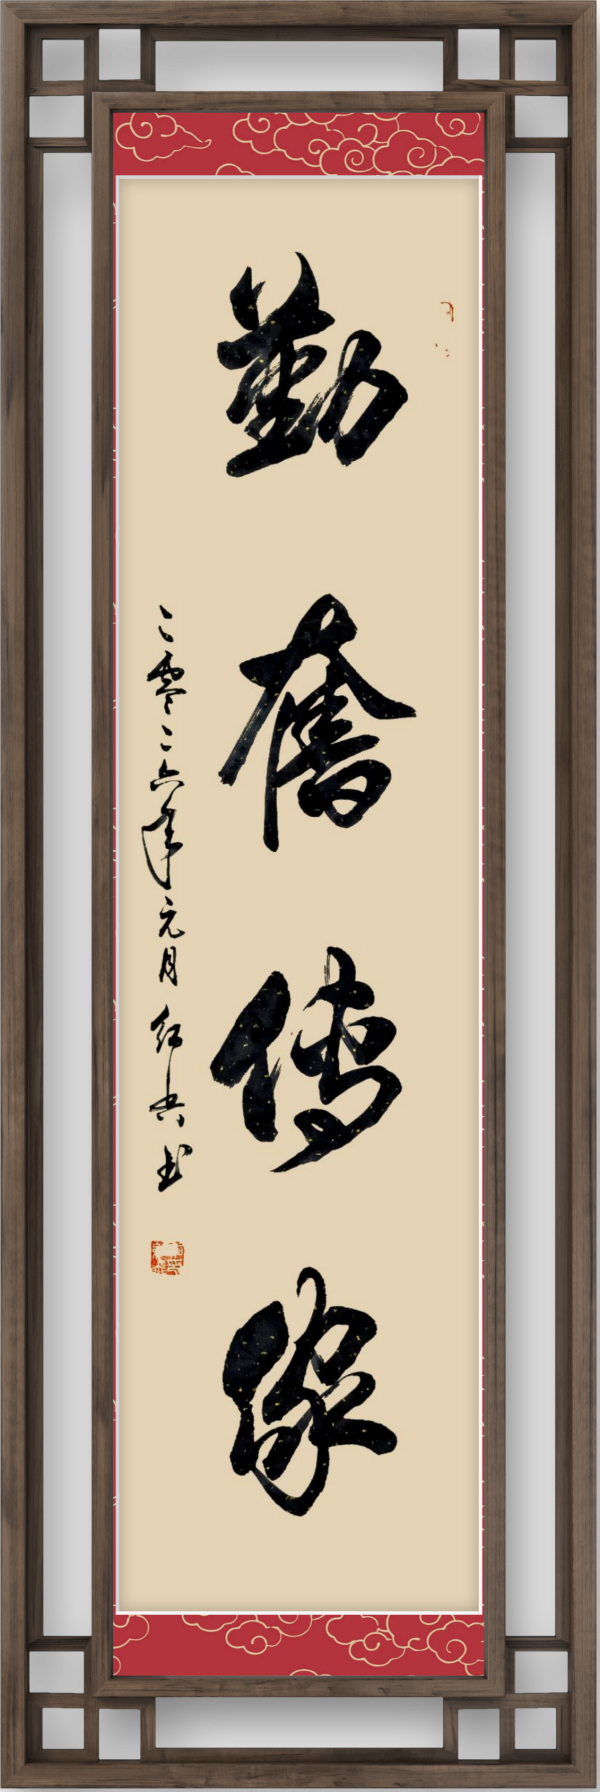 勤奮傳家
二零二六年元月 红兵书